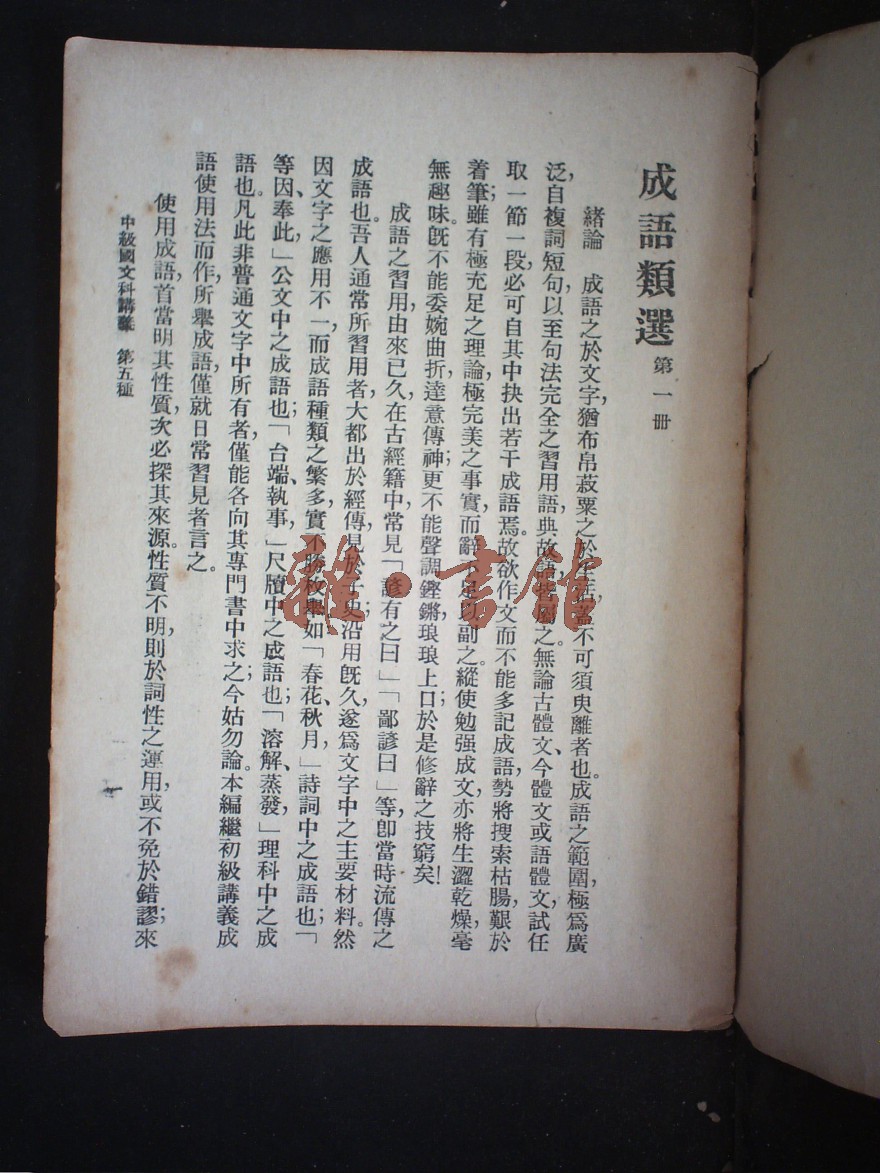 成語類選 第一冊
緒論　成語之於文字，猶布帛菽粟之於生活，蓋不可須臾離者也。成語之範圍，極爲廣
泛，自複詞短句，以至句法完全之習用語，典故語，皆屬之。無論古體文、今體文或語體文，試任
取一節一段，必可自其中抉出若干成語焉。故欲作文而不能多記成語，勢將搜索枯腸，艱於
着筆；雖有極充足之理論，極完美之事實，而辭不足以副之。縱使勉强成文，亦將生澀乾燥，毫
無趣味。旣不能委婉曲折，達意傳神；更不能聲調鏗鏘，琅琅上口；於是修辭之技窮矣！
成語之習用，由來已久，在古經籍中，常見「諺有之曰」「鄙諺曰」等，卽當時流傳之
成語也。吾人通常所習用者，大都出於經傳，見於子史；沿用旣久，遂爲文字中之主要材料。然
因文字之應用不一，而成語種類之繁多，實不勝枚舉。如「春花、秋月，」詩詞中之成語也；「
等因、奉此，」公文中之成語也；「台端、執事，」尺牘中之成語也；「溶解、蒸發，」理科中之成
語也。凡此非普通文字中所有者，僅能各向其專門書中求之；今姑勿論。本編繼初級講義成
語使用法而作，所舉成語，僅就日常習見者言之。
使用成語，首當明其性質，次必探其來源。性質不明，則於詞性之運用，或不免於錯謬；來
中級國文科講義　第五種
一
雜·書館